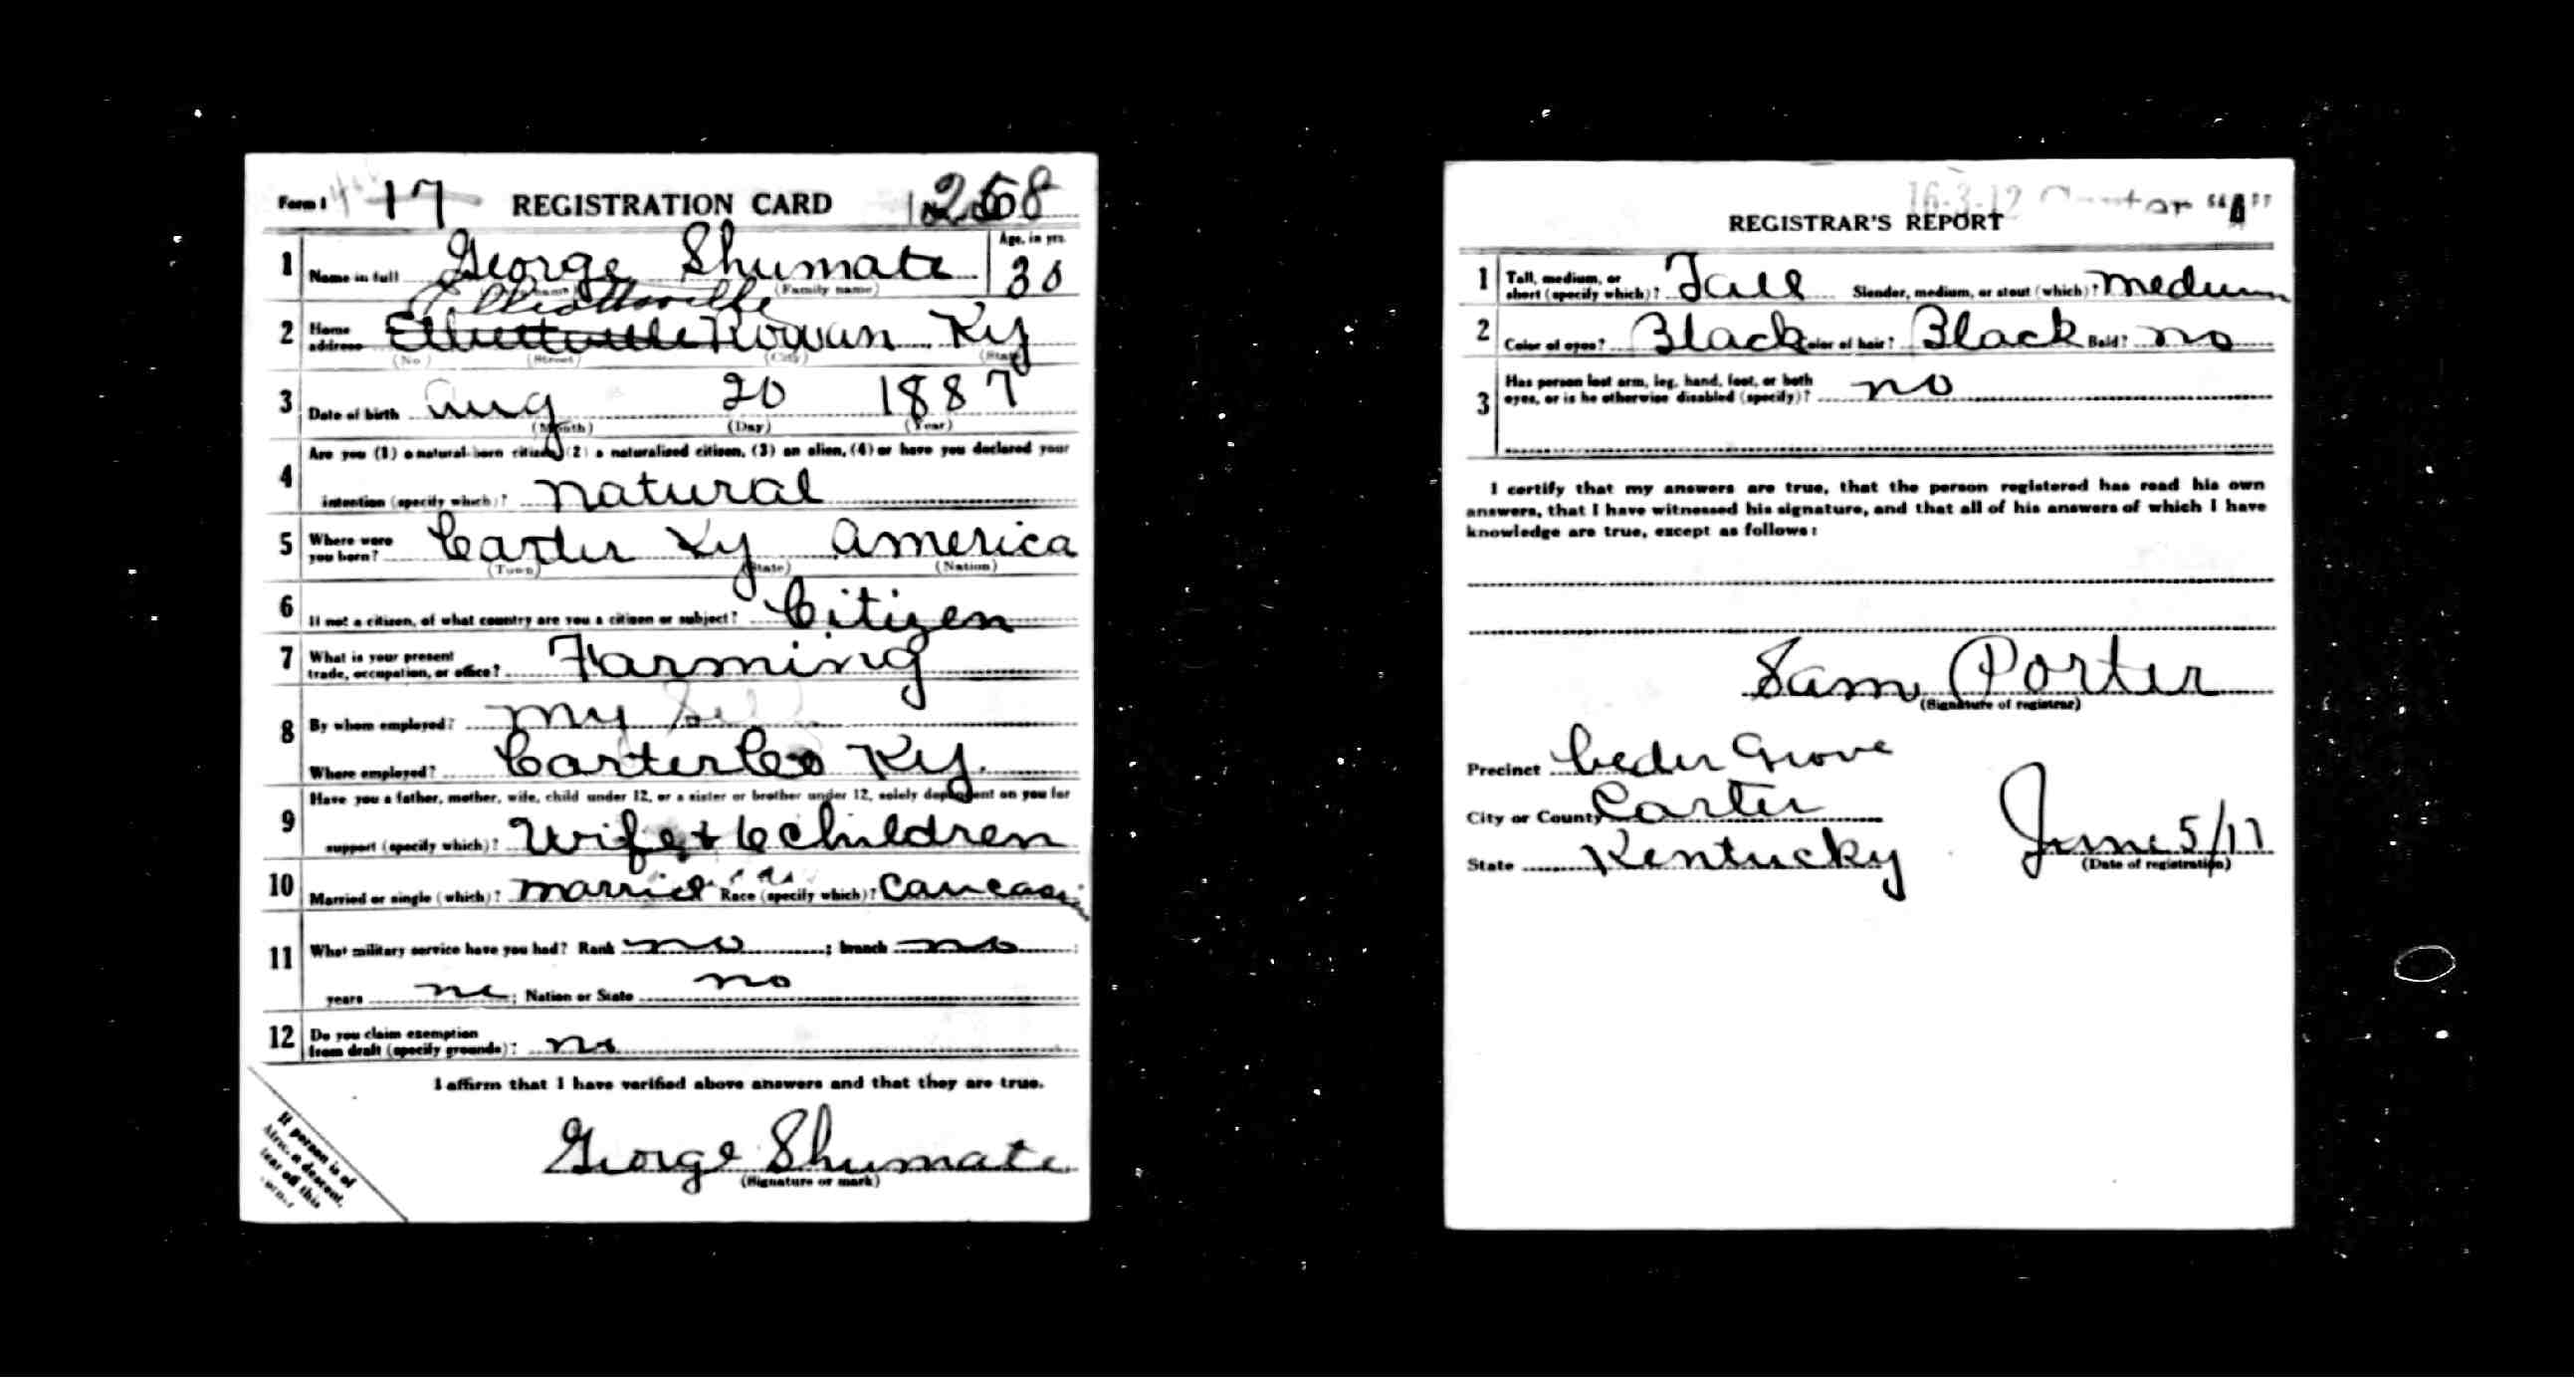 Form 1 17 REGISTRATION CARD
1 Name in full George Shumate (Family name) Age, in yrs. 30
Elliottsville
2 Home address Elliottsville Rowan Ky
(No.) (Street) (City) (State)
3 Date of birth Aug 20 1887
(Month) (Day) (Year)
4 Are you (1) a natural-born citizen, (2) a naturalized citizen, (3) an alien, (4) or have you declared your
intention (specify which)? natural
5 Where were you born? Carter Ky America
(Town) (State) (Nation)
6 If not a citizen, of what country are you a citizen or subject? Citizen
7 What is your present trade, occupation, or office? Farming
8 By whom employed? my
Where employed? Carter Co Ky.
9 Have you a father, mother, wife, child under 12, or a sister or brother under 12, solely dependent on you for
support (specify which)? Wife + 6 children
10 Married or single (which)? married Race (specify which)? Caucasian
11 What military service have you had? Rank no ; branch no ;
years no ; Nation or State no
12 Do you claim exemption from draft (specify grounds)? no
I affirm that I have verified above answers and that they are true.
George Shumate
(Signature or mark)
If person is of
African descent,
tear off this
corner
16-3-12 Carter "A"
REGISTRAR'S REPORT
1 Tall, medium, or short (specify which)? Tall Slender, medium, or stout (which)? medium
2 Color of eyes? Black Color of hair? Black Bald? no
3 Has person lost arm, leg, hand, foot, or both eyes, or is he otherwise disabled (specify)? no
I certify that my answers are true, that the person registered has read his own
answers, that I have witnessed his signature, and that all of his answers of which I have
knowledge are true, except as follows:
Sam Porter
(Signature of registrar)
Precinct Ceder Grove
City or County Carter
State Kentucky June 5/17
(Date of registration)